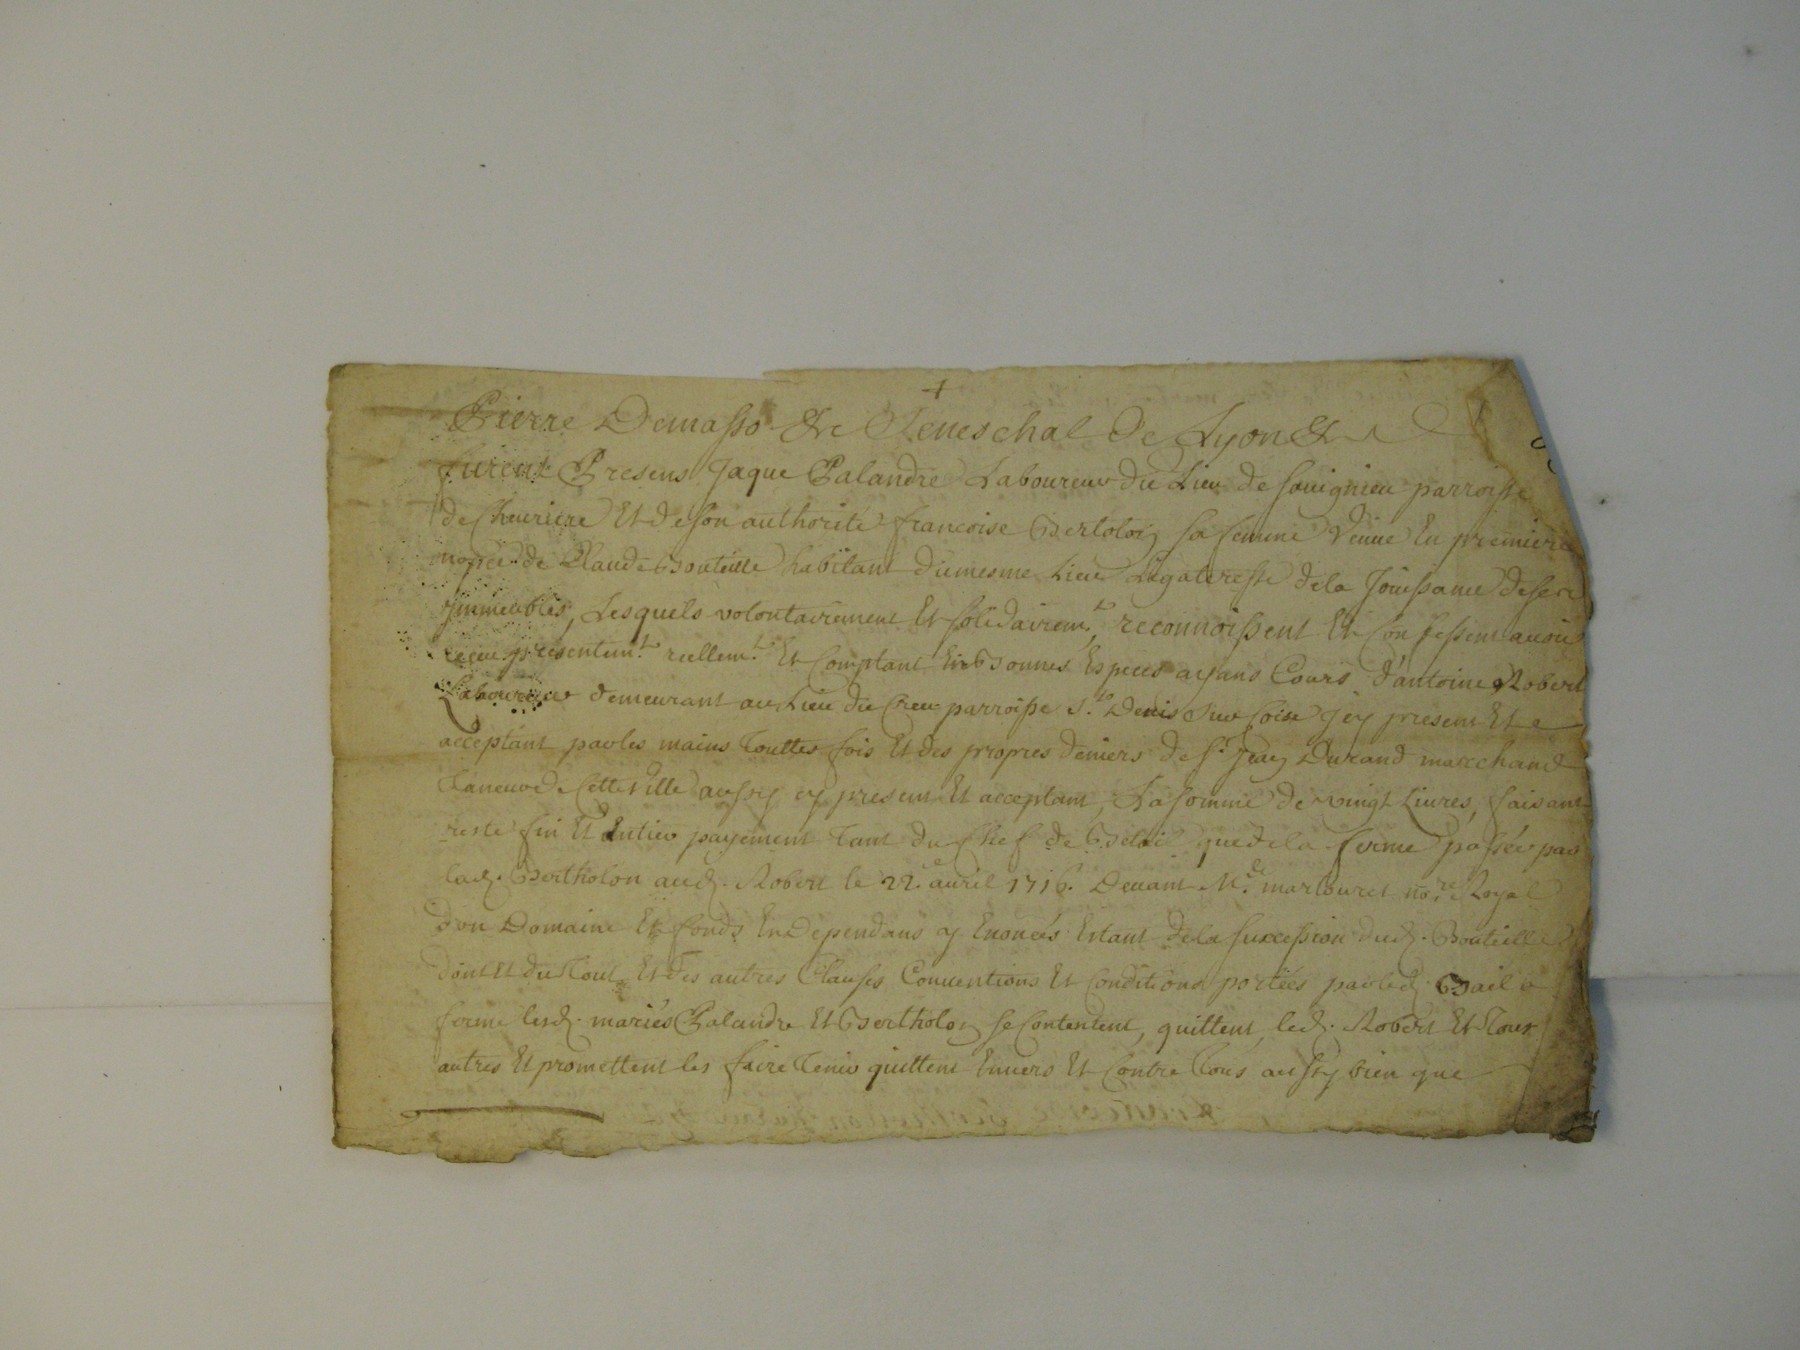 +
Pierre Demasso &c Seneschal de Lyon &c
furent Presens Jaque Palandre Laboureur du Lieu de Souignieu parroisse
de Cheuriere Et de son authorité francoise Bertolon sa femme Veuue En premiere
nopce de Claude Bouteille habitant du mesme Lieu Legateresse de la Jouissance de ses
jmmeubles, Lesquels volontairement Et solidairemt, reconnoissent Et Confessent auoir
receu presentemt reellemt Et Comptant En Bonnes Especes ayans Cours d'antoine Robert
Laboureur demeurant au Lieu du Creu parroisse St Denis sur Coise Jcy present Et
acceptant par les mains Touttes fois Et des propres deniers de Sr Jean Durand marchand
Taneur de Cette Ville aussy cy present Et acceptant, La somme de vingt Liures, faisant
reste fin Et Entier payement Tant du Chef de Betail que de la ferme passée par
lad. Bertholon aud. Robert le 22e auril 1716. Deuant Me marlouret nore Royal
d'un Domaine Et fonds En dependans y Enoncés Estant de la succession dud. Bouteille
dont Et du Tout Et des autres Clauses Conuentions Et Conditions portées par led. Bail a
ferme lesd. mariés Palandre Et Bertholon se Contentent, quittent led. Robert Et Tous
autres Et promettent les faire Tenir quittent Enuers Et Contre Tous aussy bien que